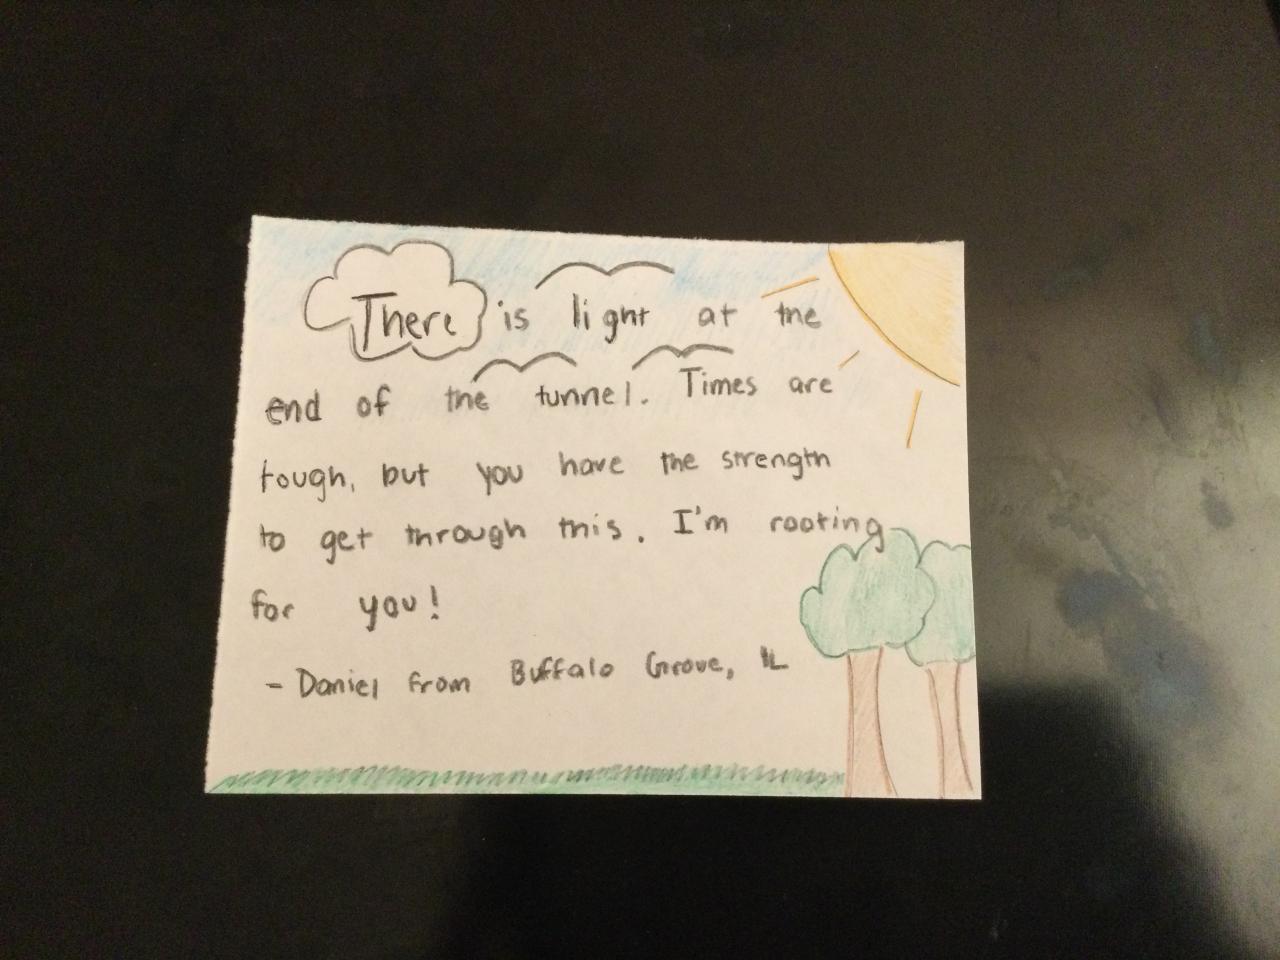 There is light at the
end of the tunnel. Times are
tough, but you have the strength
to get through this. I'm rooting
for you!
- Daniel from Buffalo Grove, IL